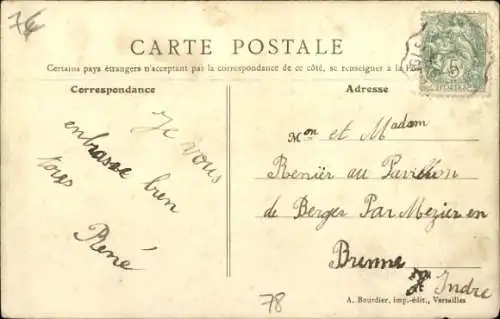 76
CARTE POSTALE
Certains pays étrangers n'acceptant pas la correspondance de ce côté, se renseigner à la
Correspondance
Je vous
embrasse bien
tous
René
Adresse
Mon et Madam
Renier au Pavillon
de Berger Par Mezier en
Brenne
Indre
78
A. Bourdier, imp.-édit., Versailles